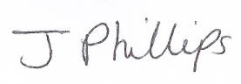 J Phillips